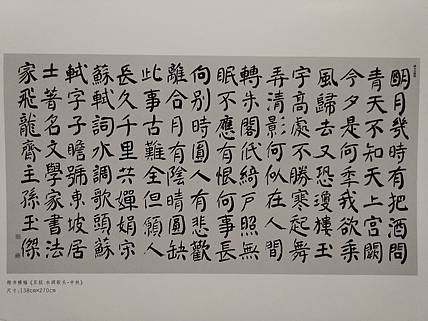 明月幾時有把酒問
青天不知天上宮闕
今夕是何秊我欲乘
風歸去又恐瓊樓玉
宇高處不勝寒起舞
弄清影何似在人間
轉朱閣低綺戶照無
眠不應有恨何事長
向別時圓人有悲歡
離合月有陰晴圓缺
此事古難全但願人
長久千里共嬋娟宋
蘇軾詞水調歌頭蘇
軾字子瞻號東坡居
士著名文學家書法
家飛龍齋主孫玉傑
楷书横幅《苏轼 水调歌头·中秋》
尺寸:138cm×270cm